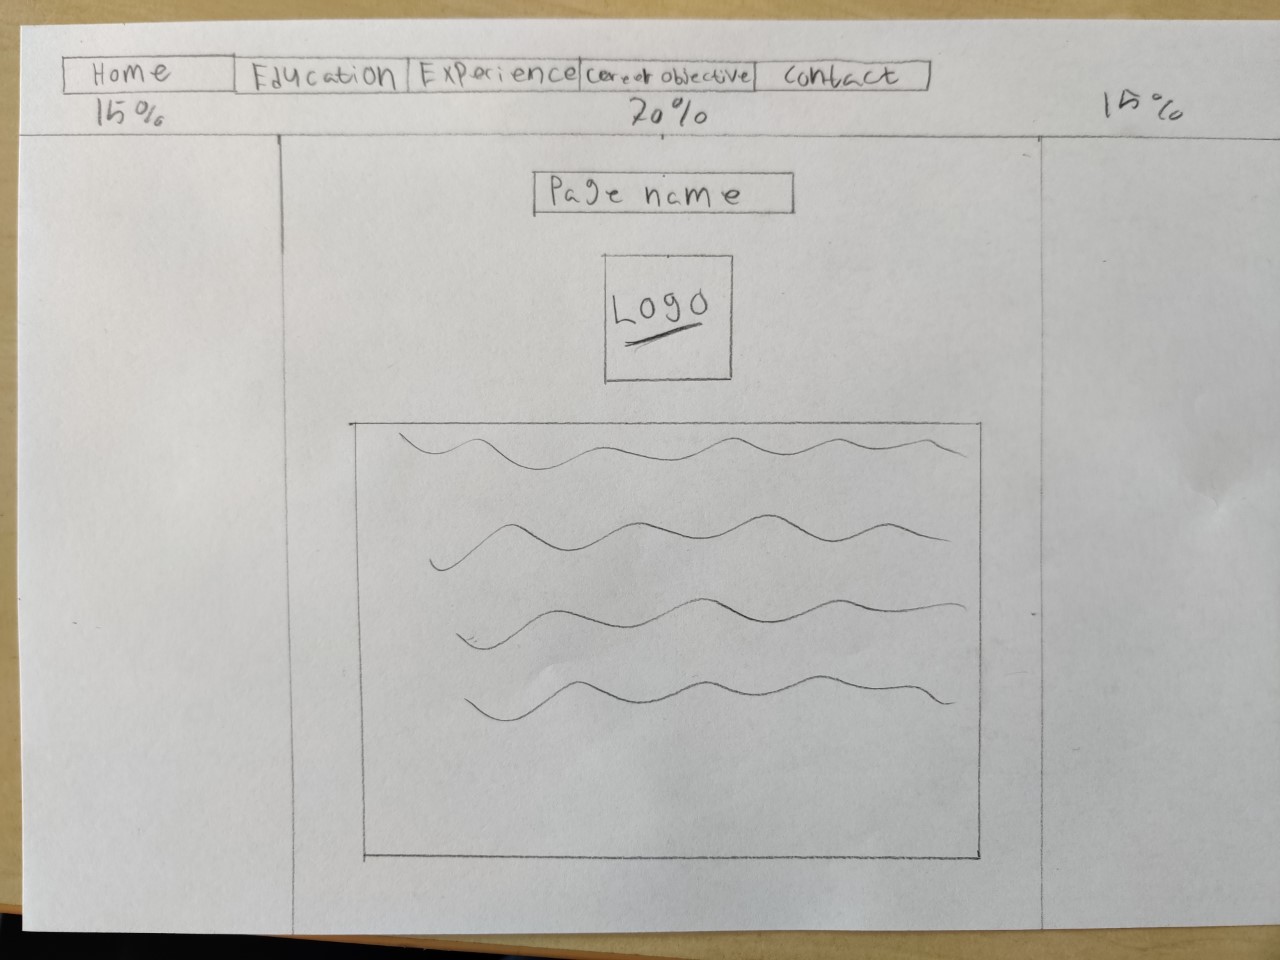 Home Education Experience Career objective Contact
15% 70% 15%
Page name
Logo